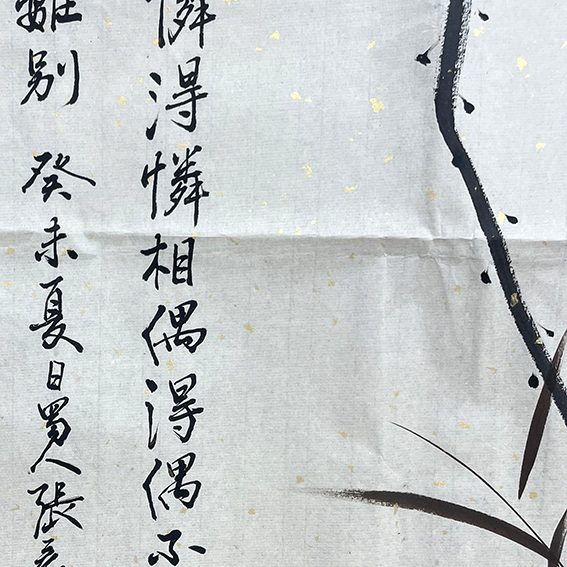 憐得憐相偶得偶不
離別 癸未夏日蜀人張